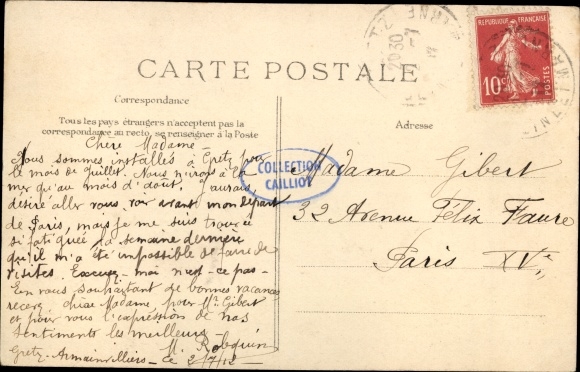 CARTE POSTALE
Correspondance
Tous les pays étrangers n'acceptent pas la
correspondance au recto, se renseigner à la Poste
Adresse
REPUBLIQUE FRANÇAISE
10c
POSTES
COLLECTION
CAILLIOT
Chère Madame
Nous sommes installés à Gretz pour
le mois de Juillet. Nous n'irons à la
mer qu'au mois d'août. J'aurais,
désiré aller vous voir avant mon départ
de Paris, mais je me suis trouvée
si fatiguée la semaine dernière
qu'il m'a été impossible de faire de
visites. Excusez-moi n'est-ce pas-
En vous souhaitant de bonnes vacances
recevez chère Madame, pour Mr. Gibert
et pour vous l'expression de nos
sentiments les meilleurs-
M. Robquin
Gretz-Armainvilliers- ce 2/7/12-
Madame Gibert
32 Avenue Félix Faure
Paris XVe